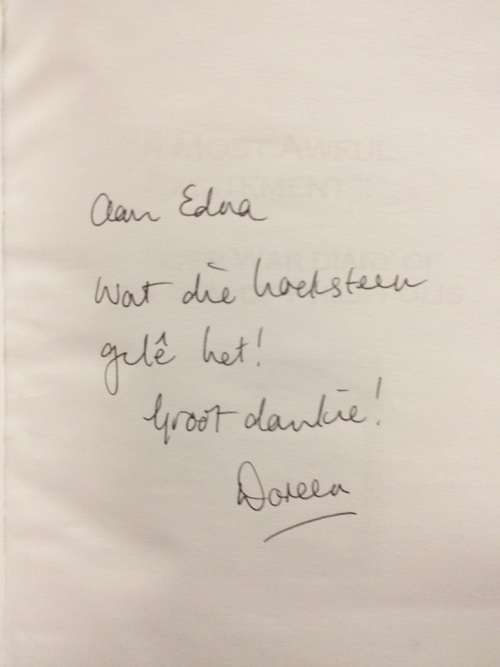 Aan Edna
Wat die hoeksteen
gelê het!
Groot dankie!
Doreen